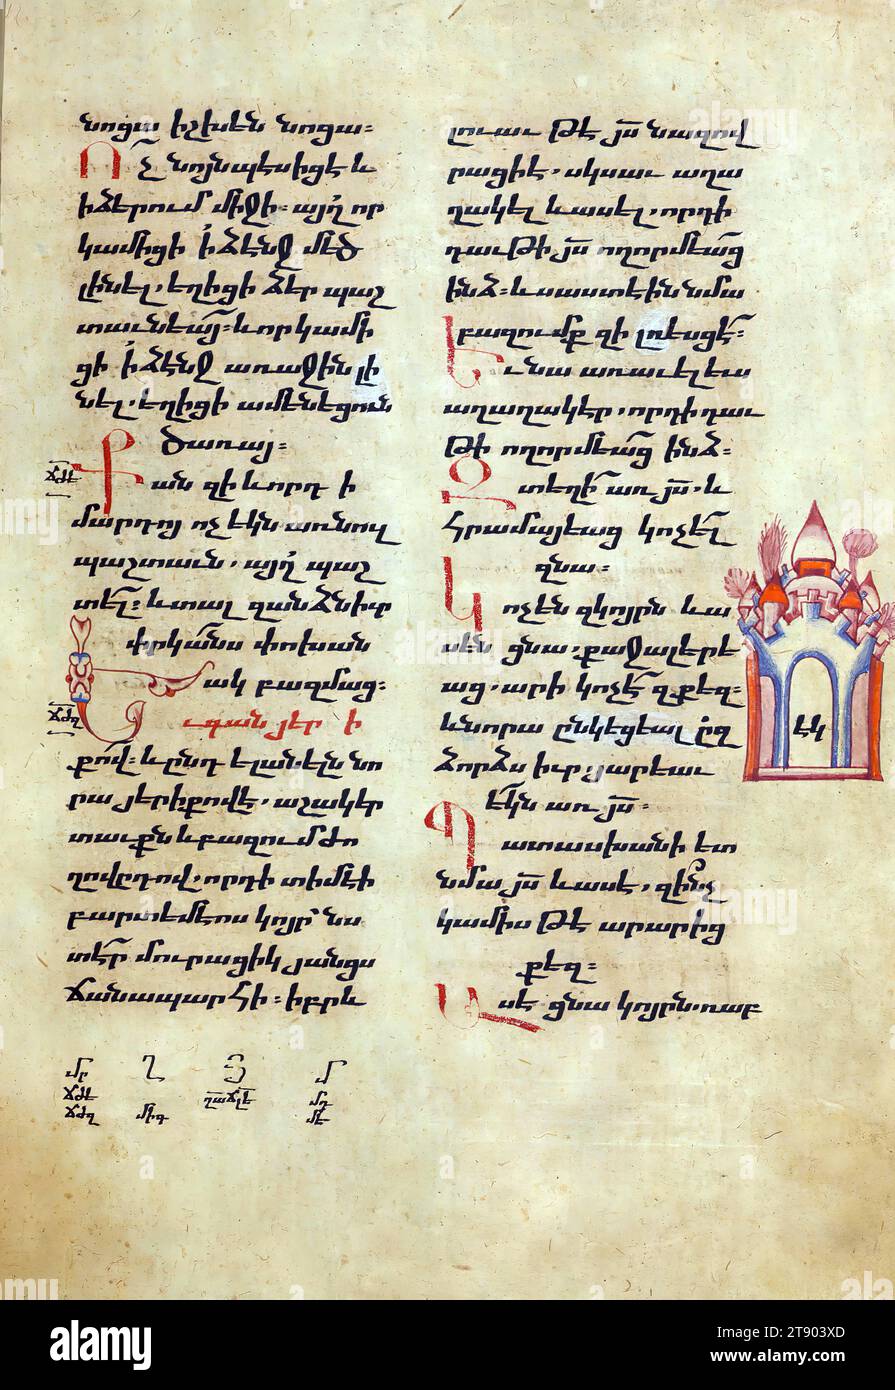 նոցա իշխեն նոցա։
Ոչ նոյնպէս իցէ և
ի ձերում միջի․ այղ որ
կամիցի ի ձէնջ մեծ
լինել․ եղիցի ձեր պաշ
տաւնեայ։ և որ կամի
ցի ի ձէնջ առաջին լի
նել․ եղիցի ամենեցուն
ծառայ։
Քանզի և որդի
մարդոյ ոչ եկն առնուլ
պաշտաւն․ այղ պաշ
տել։ և տալ զանձն իւր
փրկանս փոխան
ակ բազմաց։
ճժե
Եւ գան յերի
ճժզ
քով․ և ընդ ելանելն նո
րա յերիքովէ․ աշակեր
տաւքն և բազում ժո
ղովրդով․ որդի տիմէի
բարտիմէոս կոյր նս
տէր մուրացիկ յանցս
ճանապարհի։ իբրև
լուաւ թէ յս նազով
րացի է․ սկսաւ աղա
ղակել և ասել․ որդի
դաւթի յս ողորմեաց
ինձ։ և սաստէին նմա
բազումք զի լռեսցէ։
Եւ նա առաւել ևս
աղաղակէր․ որդի դաւ
թի ողորմեաց ինձ։
Զտեղի առ յս․ և
հրամայեաց կոչել
զնա։
Կոչեն զկոյրն և ա
սեն ցնա․ քաջալերե
աց․ արի կոչէ զքեզ։
և նորա ընկեցեալ զ
ձորձս իւր․ յարեաւ
եկն առ յս։
Պատասխանի ետ
նմա յս և ասէ․ զինչ
կամիս թէ արարից
քեզ։
Ասէ ցնա կոյրն․ ռաբ
մր
ճժե
ճժզ
ղ
միգ
մ
մդ
մե
alamy
Image ID: 2T903XD
www.alamy.com